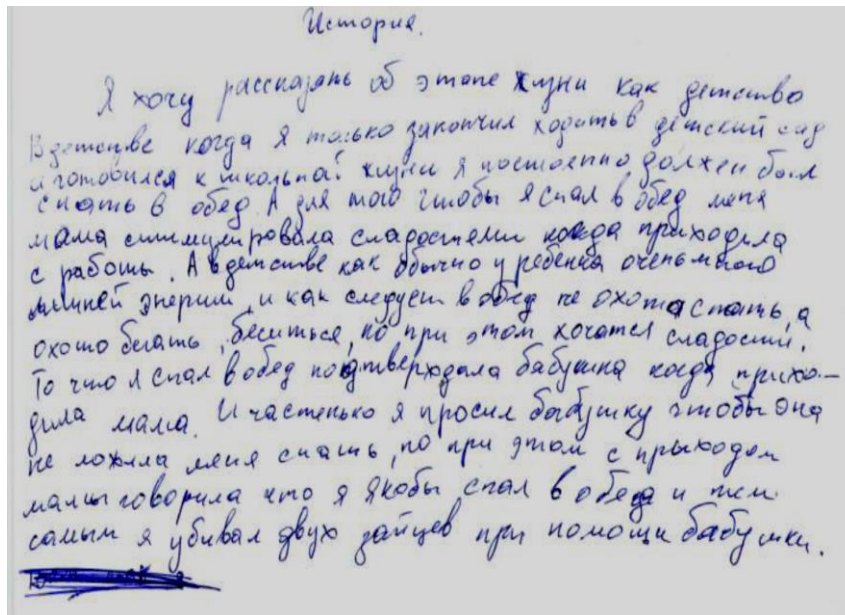 История.
Я хочу рассказать об этапе жизни как детство
В детстве когда я только закончил ходить в детский сад
и готовился к школьной жизни я постоенно должен был
спать в обед. А для того чтобы я спал в обед меня
мама стимулировала сладостями когда приходила
с работы. А в детстве как обычно у ребенка очень много
лишней энергии, и как следует в обед не охота спать, а
охото бегать, беситься, но при этом хочатся сладостий.
То что я спал в обед подтверждала бабушка когда прихо-
дила мама. И частенько я просил бабушку чтобы она
не ложила меня спать, но при этом с прыходем
мамы говорила что я якобы спал в обеда и тем
самым я убивал двух зайцев при помощи бабушки.